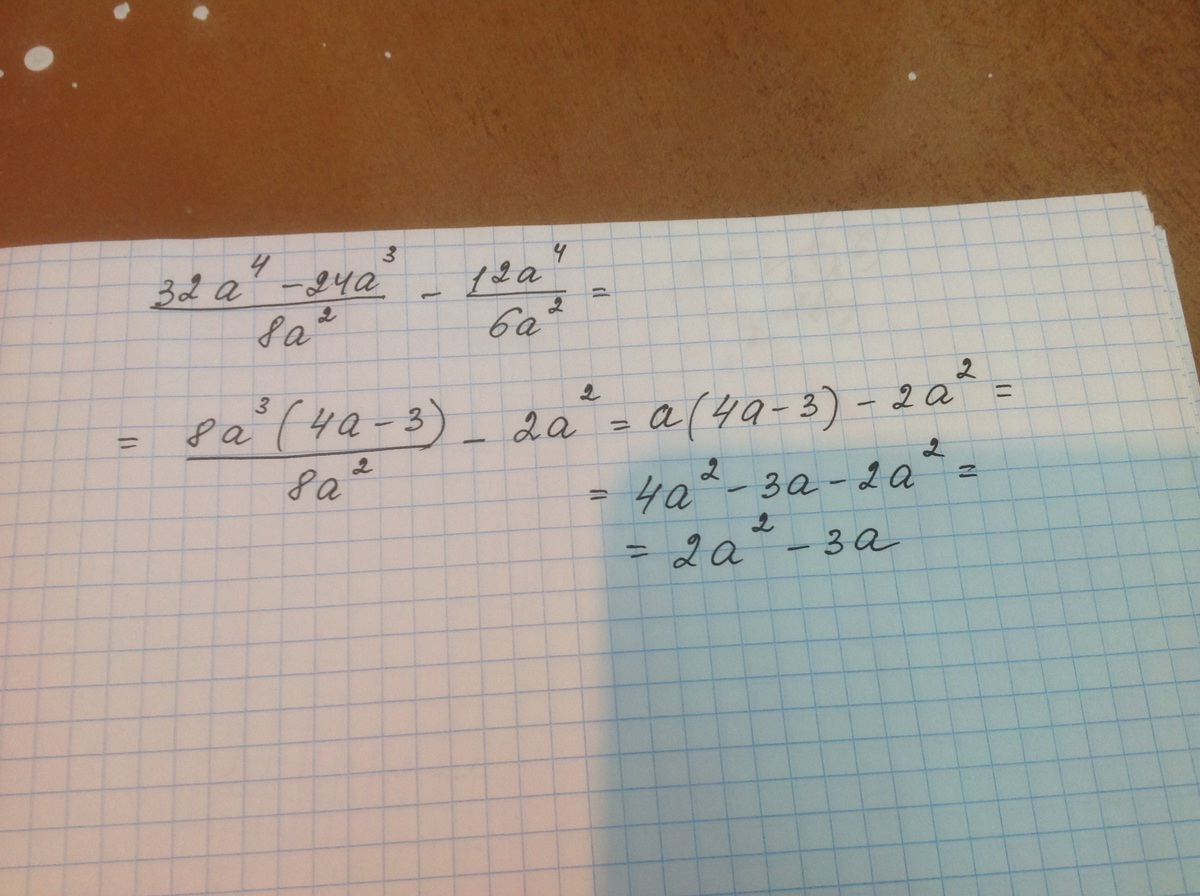 (32a⁴ - 24a³)/(8a²) - (12a⁴)/(6a²) =
= (8a³(4a - 3))/(8a²) - 2a² = a(4a - 3) - 2a² =
= 4a² - 3a - 2a² =
= 2a² - 3a